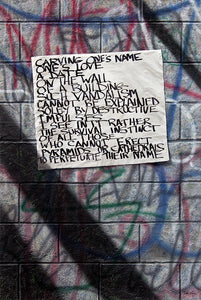 CARVING ONE'S NAME
A LOVE
A DATE
ON THE WALL
OF A BUILDING
VANDALISM
CANNOT BE EXPLAINED
BY DESTRUCTIVE
I SEE IN IT RATHER
THE SURVIVAL INSTINCT
OF ALL THOSE
WHO CANNOT ERECT
PYRAMIDS OR CATHEDRALS
THEIR NAME